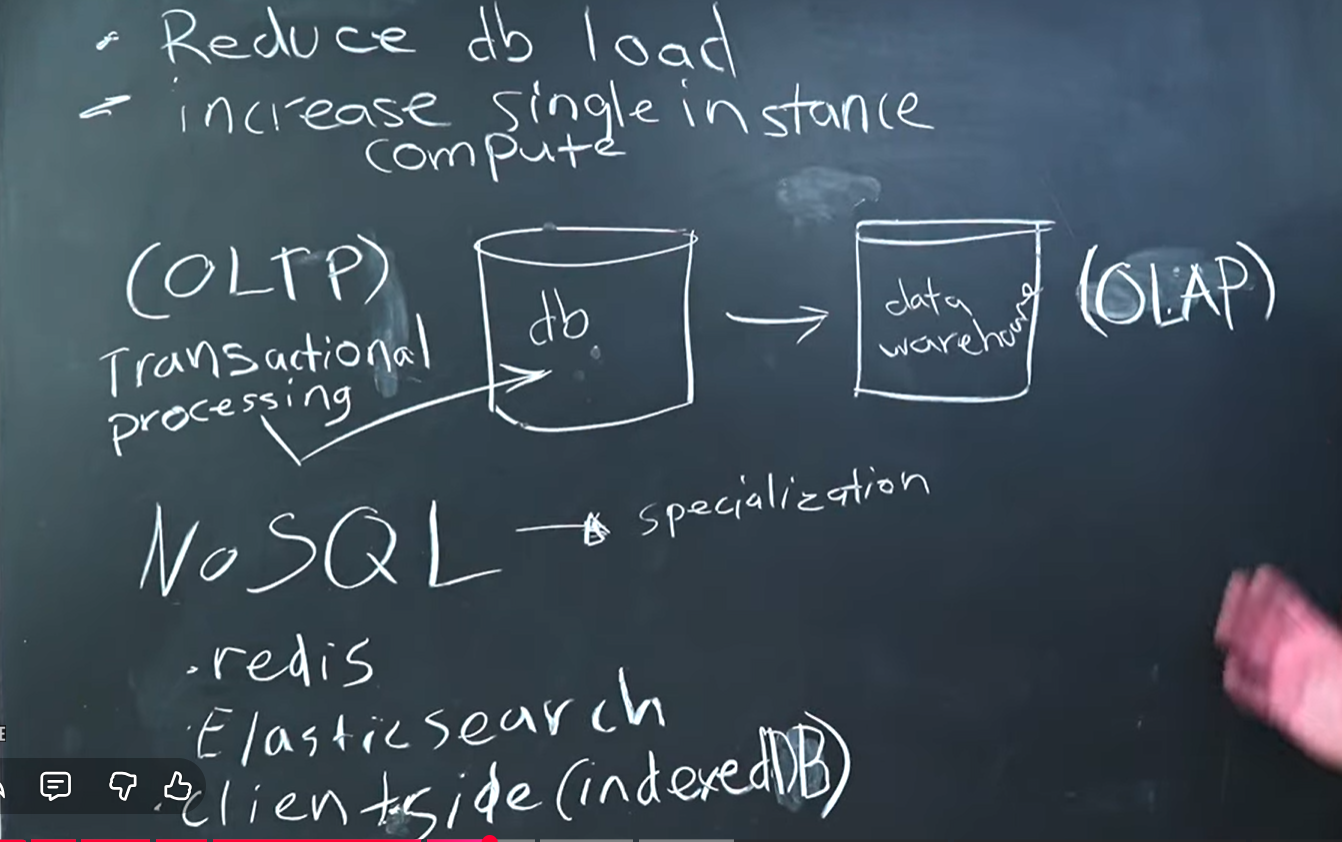 Reduce db load
increase single instance
compute
(OLTP)
Transactional
processing
db
data
warehouse
(OLAP)
NoSQL → specialization
redis
Elasticsearch
clientside (indexedDB)